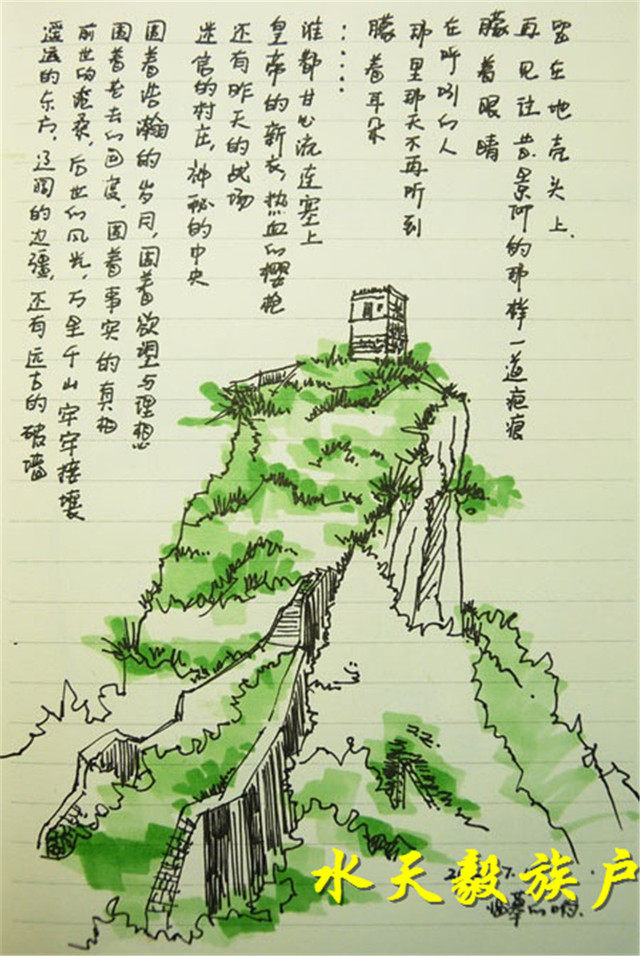 遥远的东方，辽阔的边疆，还有远古的破墙
前世的沧桑，后世的风光，万里千山牢牢接壤
围着老去的国度，围着事实的真相
围着浩瀚的岁月，围着欲望与理想
迷信的村庄，神秘的中央
还有昨天的战场
皇帝的新衣，热血的樱枪
谁都甘心流连塞上
……
朦着耳朵
那里那天不再听到
在呼吸的人
朦着眼睛
再见往昔景仰的那样一道疤痕
留在地壳头上.
22.
水天毅族户